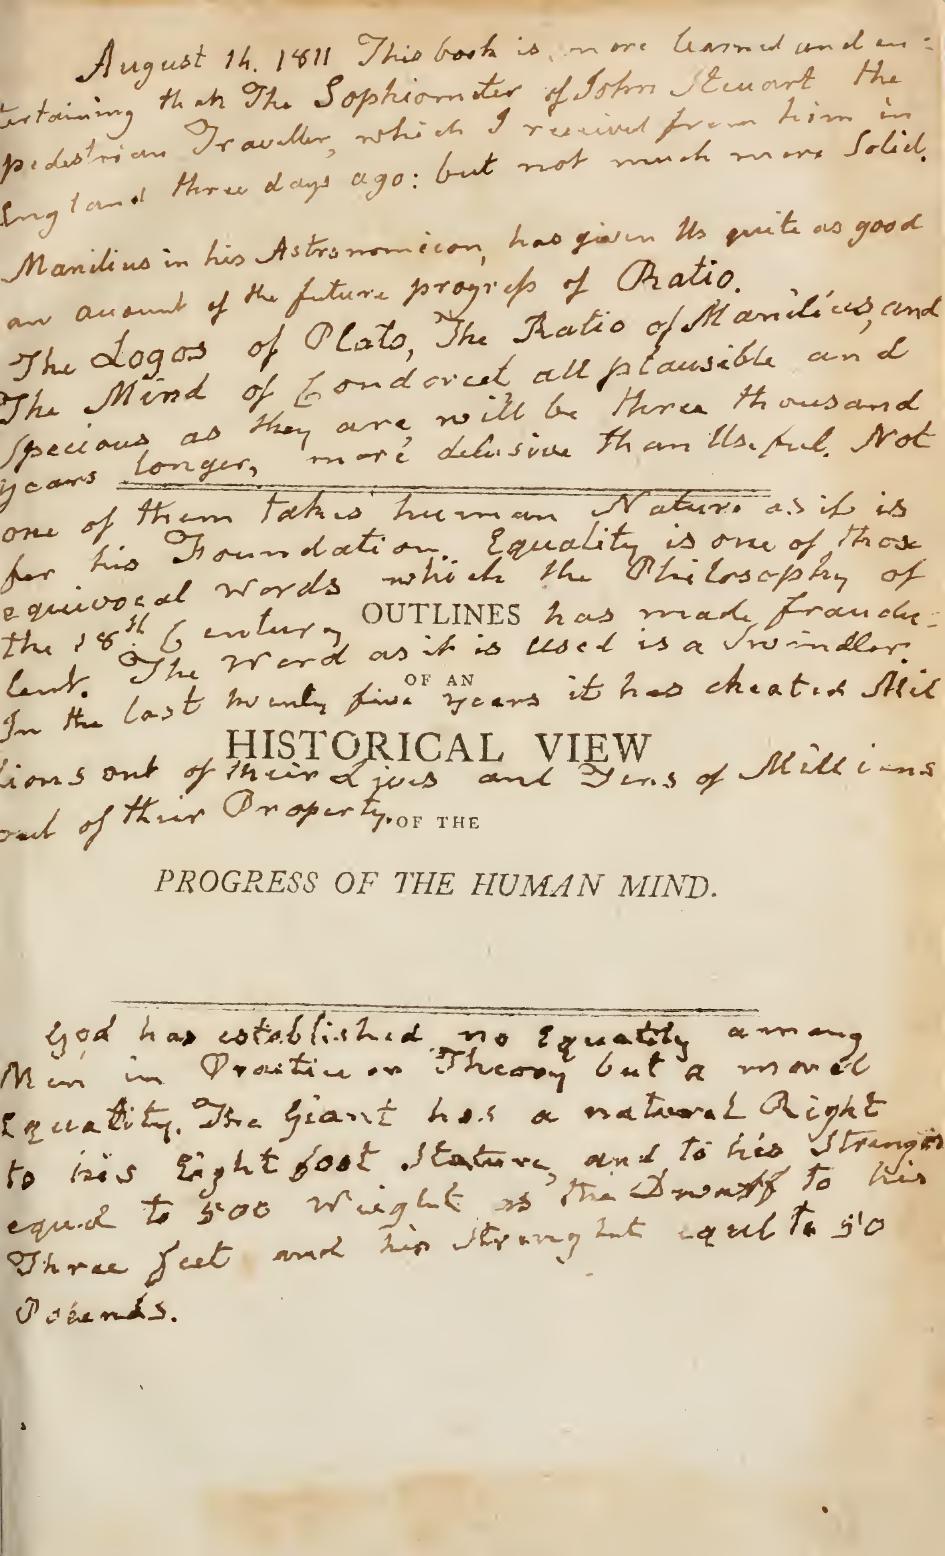 August 14. 1811 This book is more learned and en=
tertaining than The Sophiometer of John Steuart the
pedestrian Traveller, which I received from him in
England three days ago: but not much more Solid.
Manilius in his Astronomicon, has given Us quite as good
an account of the future progress of Ratio.
The Logos of Plato, The Ratio of Manilius, and
The Mind of Condorcet all plausible and
specious as they are, will be three thousand
years longer, more delusive than Useful. Not
one of them takes human Nature as it is
for his Foundation. Equality is one of those
equivocal words which the Philosophy of
the 18th Century has made fraudu=
OUTLINES
lent. The word as it is used is a Swindler.
OF AN
In the last twenty five years it has cheated Mil
HISTORICAL VIEW
lions out of their Lives and Tens of Millions
out of their Property.
OF THE
PROGRESS OF THE HUMAN MIND.
God has established no Equality among
Men in Practice or Theory but a moral
Equality. The Giant has a natural Right
to his Eight foot Stature, and to his Strength
equal to 500 Weight as the Dwarff to his
Three feet and his Strenght equl to 50
Pounds.